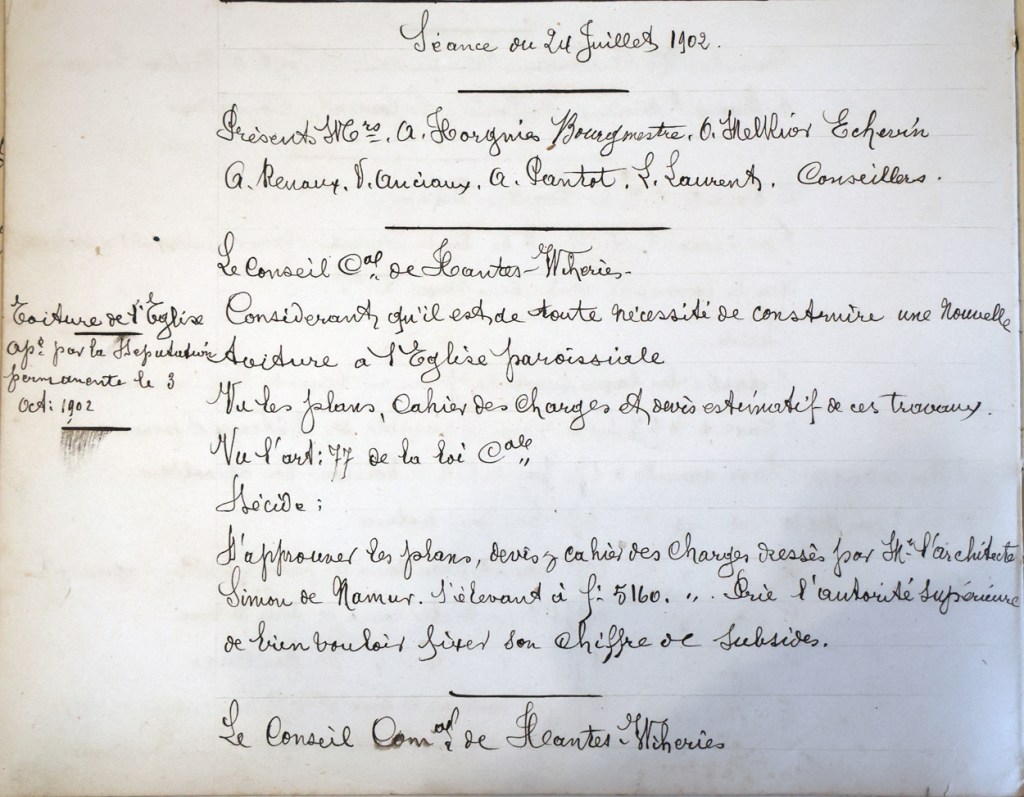 Séance du 24 Juillet 1902.
Présents Mrs. A. Horgnies Bourgmestre, O. Melkior Echevin
A. Renaux. V. Anciaux. A. Pantot. L. Laurent. Conseillers.
Le Conseil Cal de Hantes-Wiheries-
Toiture de l'Eglise
apé par la Deputation
permanente le 3
Oct: 1902
Considerant qu'il est de toute nécessité de construire une Nouvelle
toiture a l'Eglise paroissiale
Vu les plans, Cahier des Charges et devis estimatif de ces travaux.
Vu l'art: 77 de la loi Cale
Décide:
D'approuver les plans, devis & cahier des Charges dressés par Mr l'architecte
Simon de Namur. S'élevant à fr 5160. „. Prie l'autorité supérieure
de bien vouloir fixer son chiffre de subsides.
Le Conseil Comal de Hantes-Wiheries